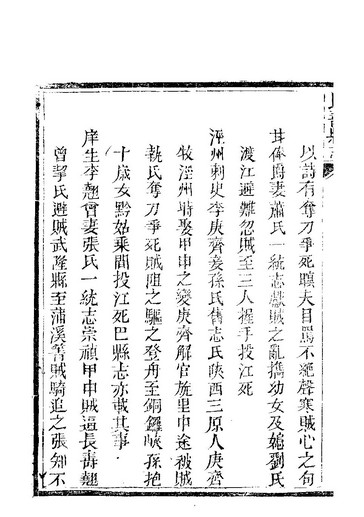 以詩有奪刀爭死瞋夫目罵不絕聲寒賊心之句
妻蕭氏一統志獻賊之亂攜幼女及媳劉氏
渡江避難忽賊至三人握手投江死
涇州刺史李庚齊妾孫氏舊志陝西三原人庚齊
牧涇州時娶甲申之變庚齊解官旋里中途被賊
執氏奪刀爭死賊阻之驅之登舟至銅鑼峽孫抱
十歲女黔姑乘間投江死巴縣志亦載其事
庠生李翹會妻張氏一統志崇禎甲申賊逼長壽翹
曾挈氏避賊武隆縣至蒲溪箐賊騎追之張知不